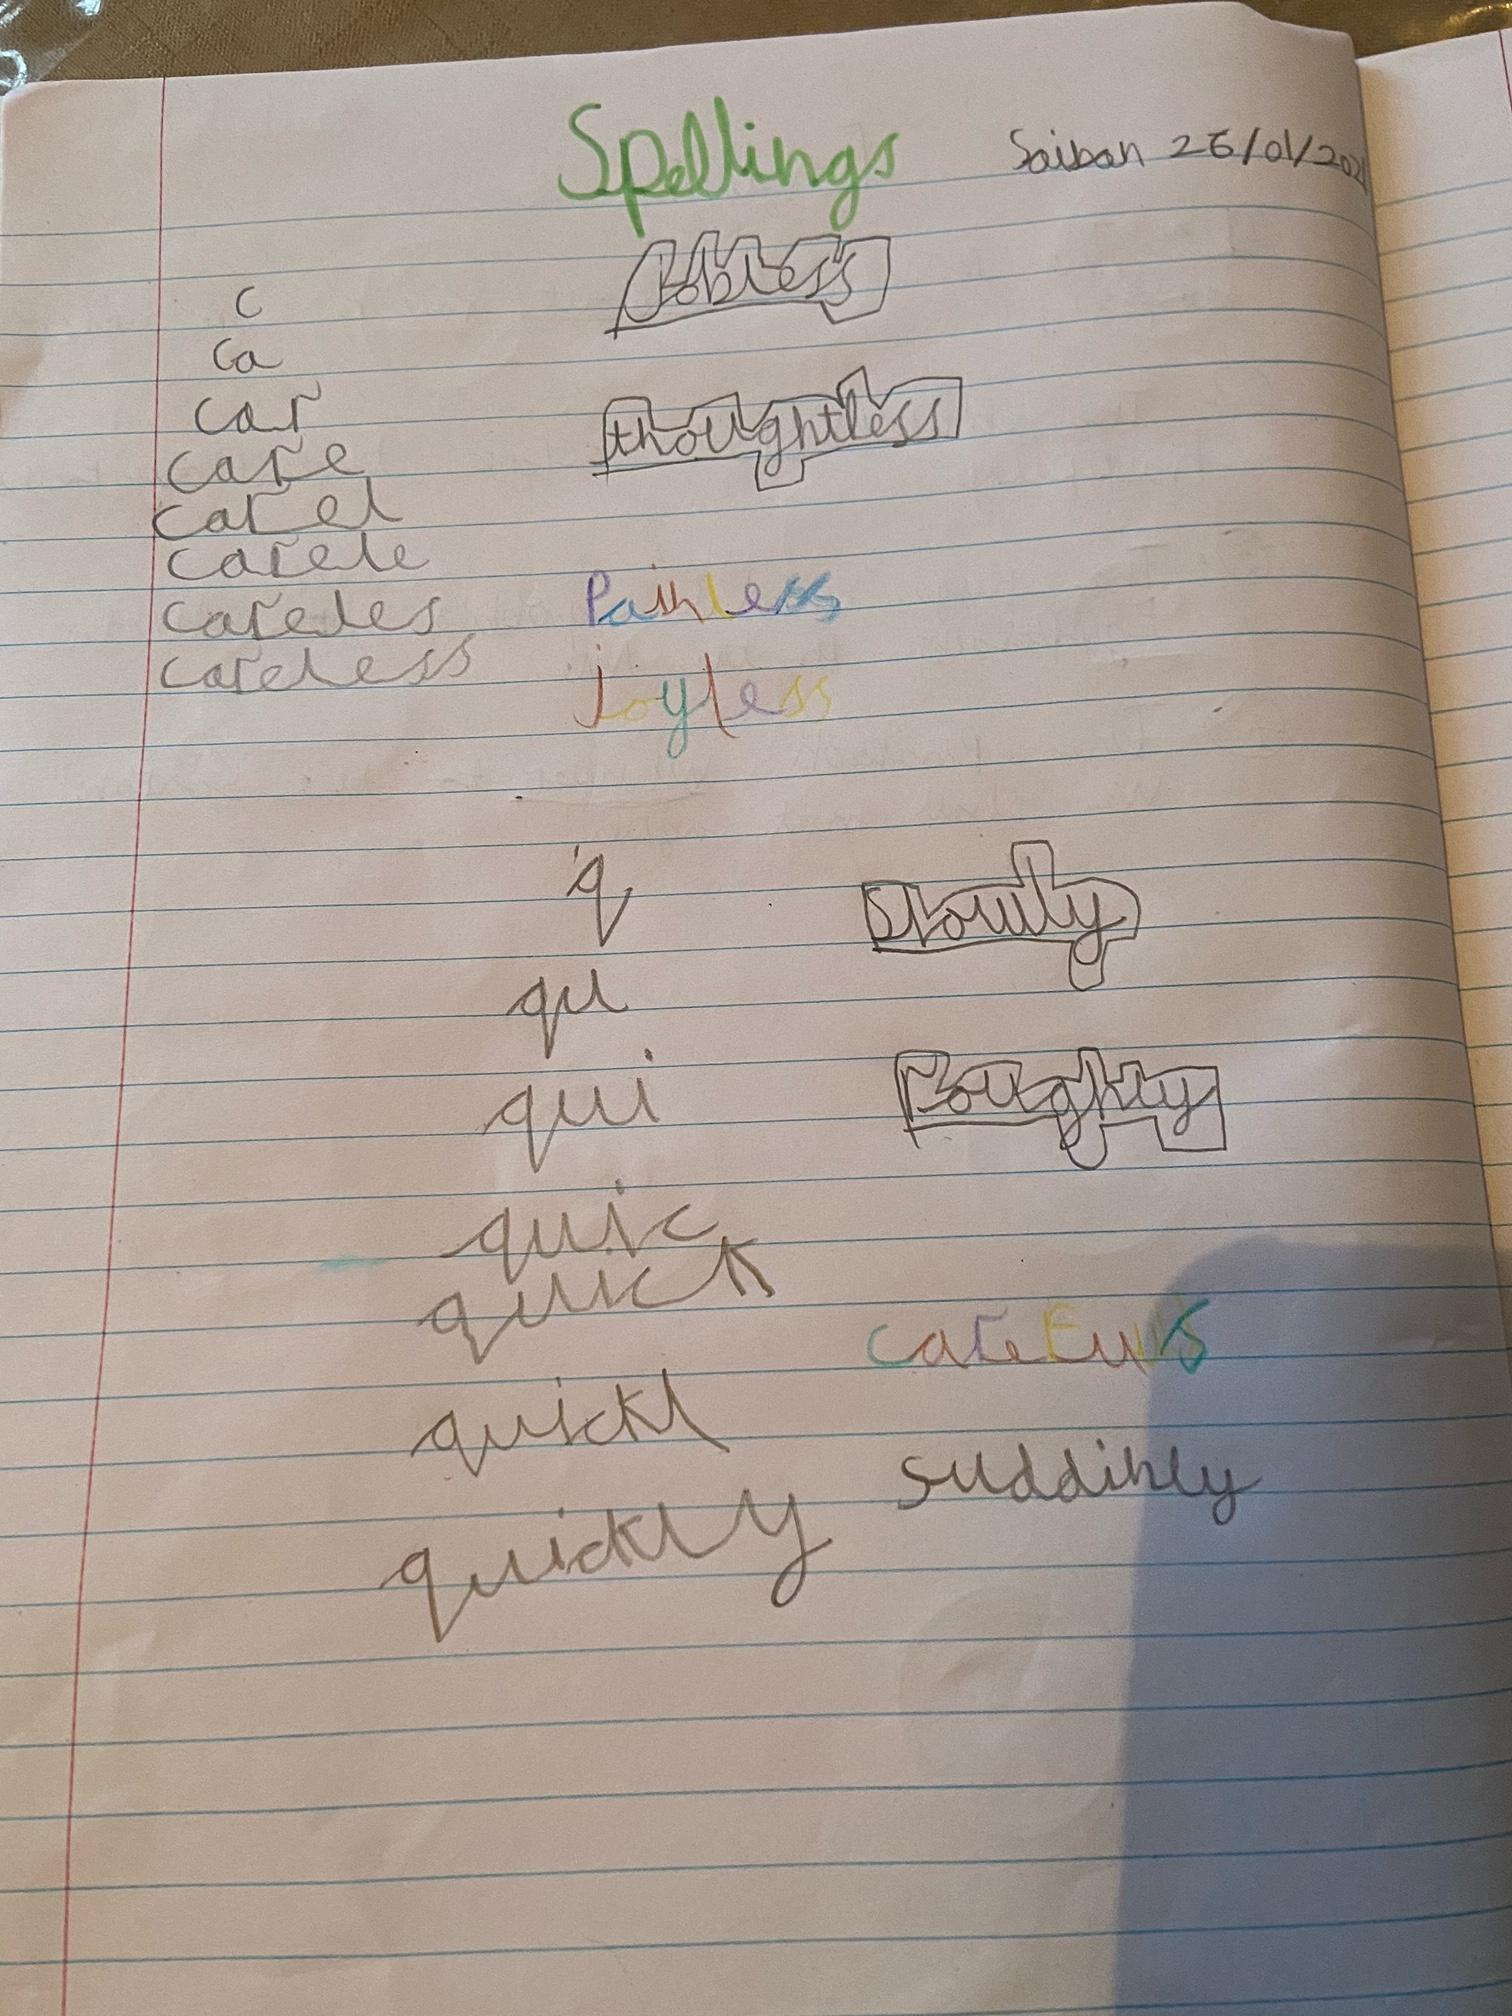 Spellings
Saiban 26/01/2021
c
ca
car
care
carel
carele
careles
careless
Jobless
thoughtless
Painless
joyless
q
qu
qui
quic
quick
quickl
quickly
slowly
Roughly
suddinly